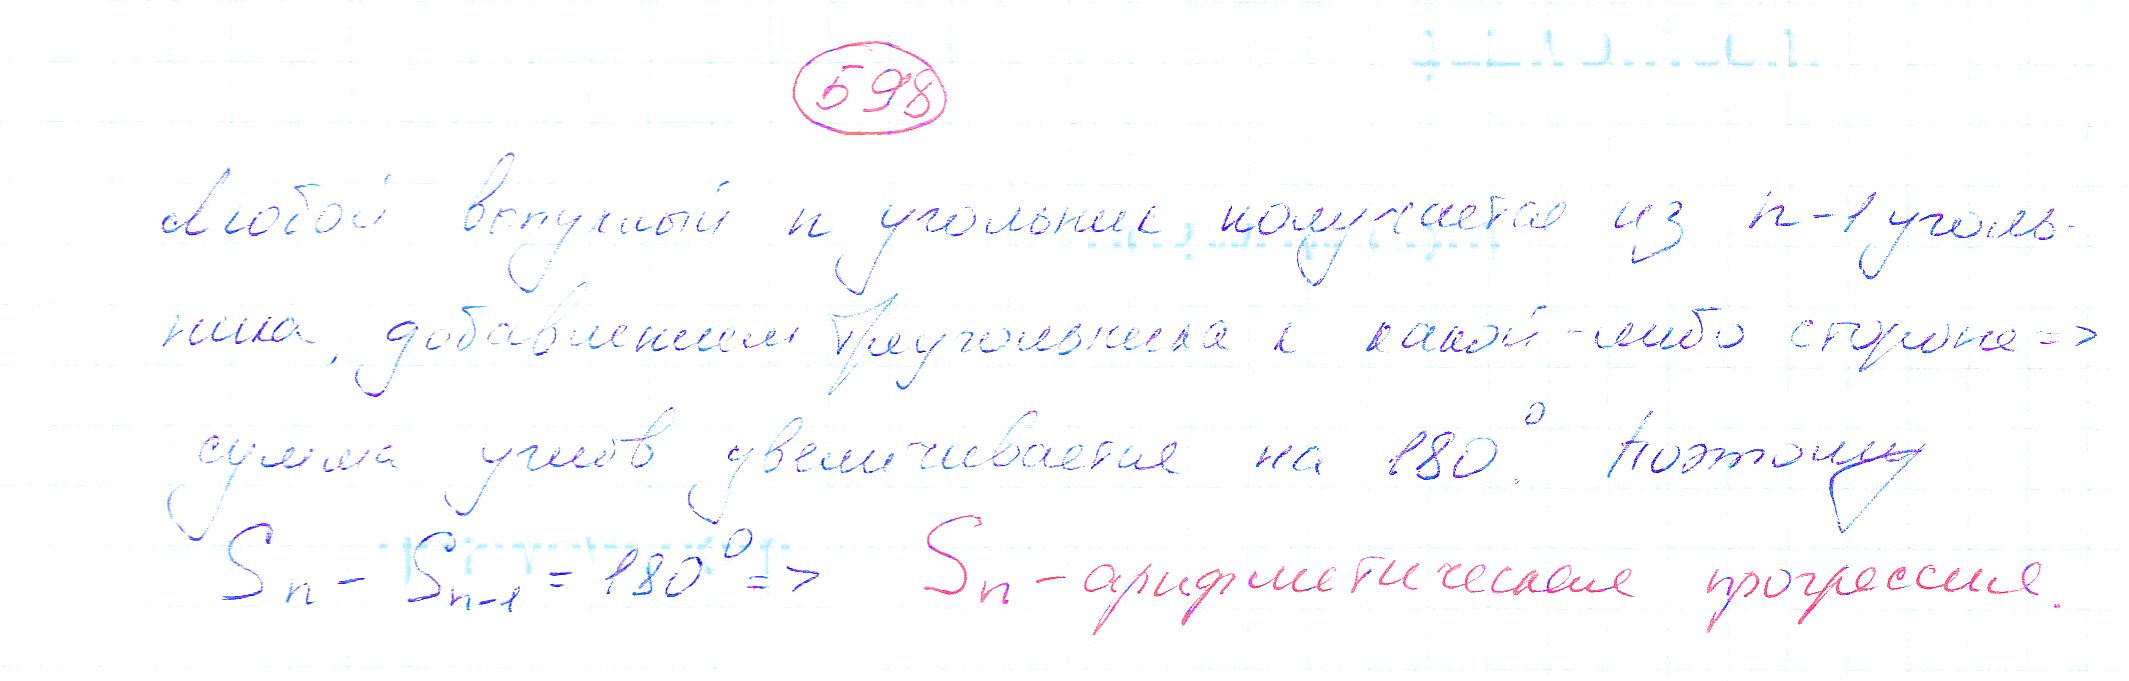 598
Любой выпуклый n угольник получается из n-1 уголь-
ника, добавлением треугольника к какой-либо стороне =>
сумма углов увеличивается на 180°. Поэтому
Sn - Sn-1 = 180° => Sn - арифметическая прогрессия.